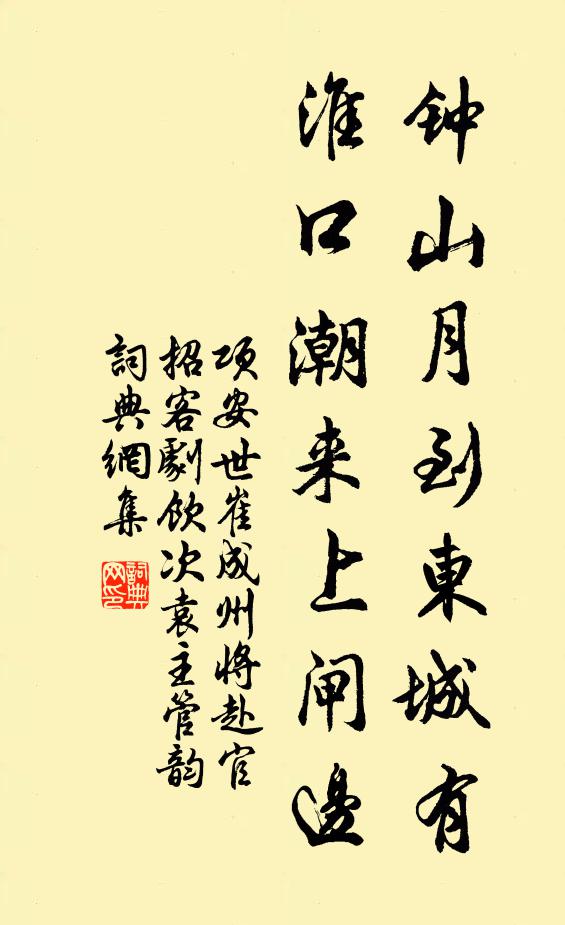 钟山月到東城有
淮口潮来上闸邊
项安世崔成州将赴官
招客劇飲次袁主管韵
詞典網集
詞典网印